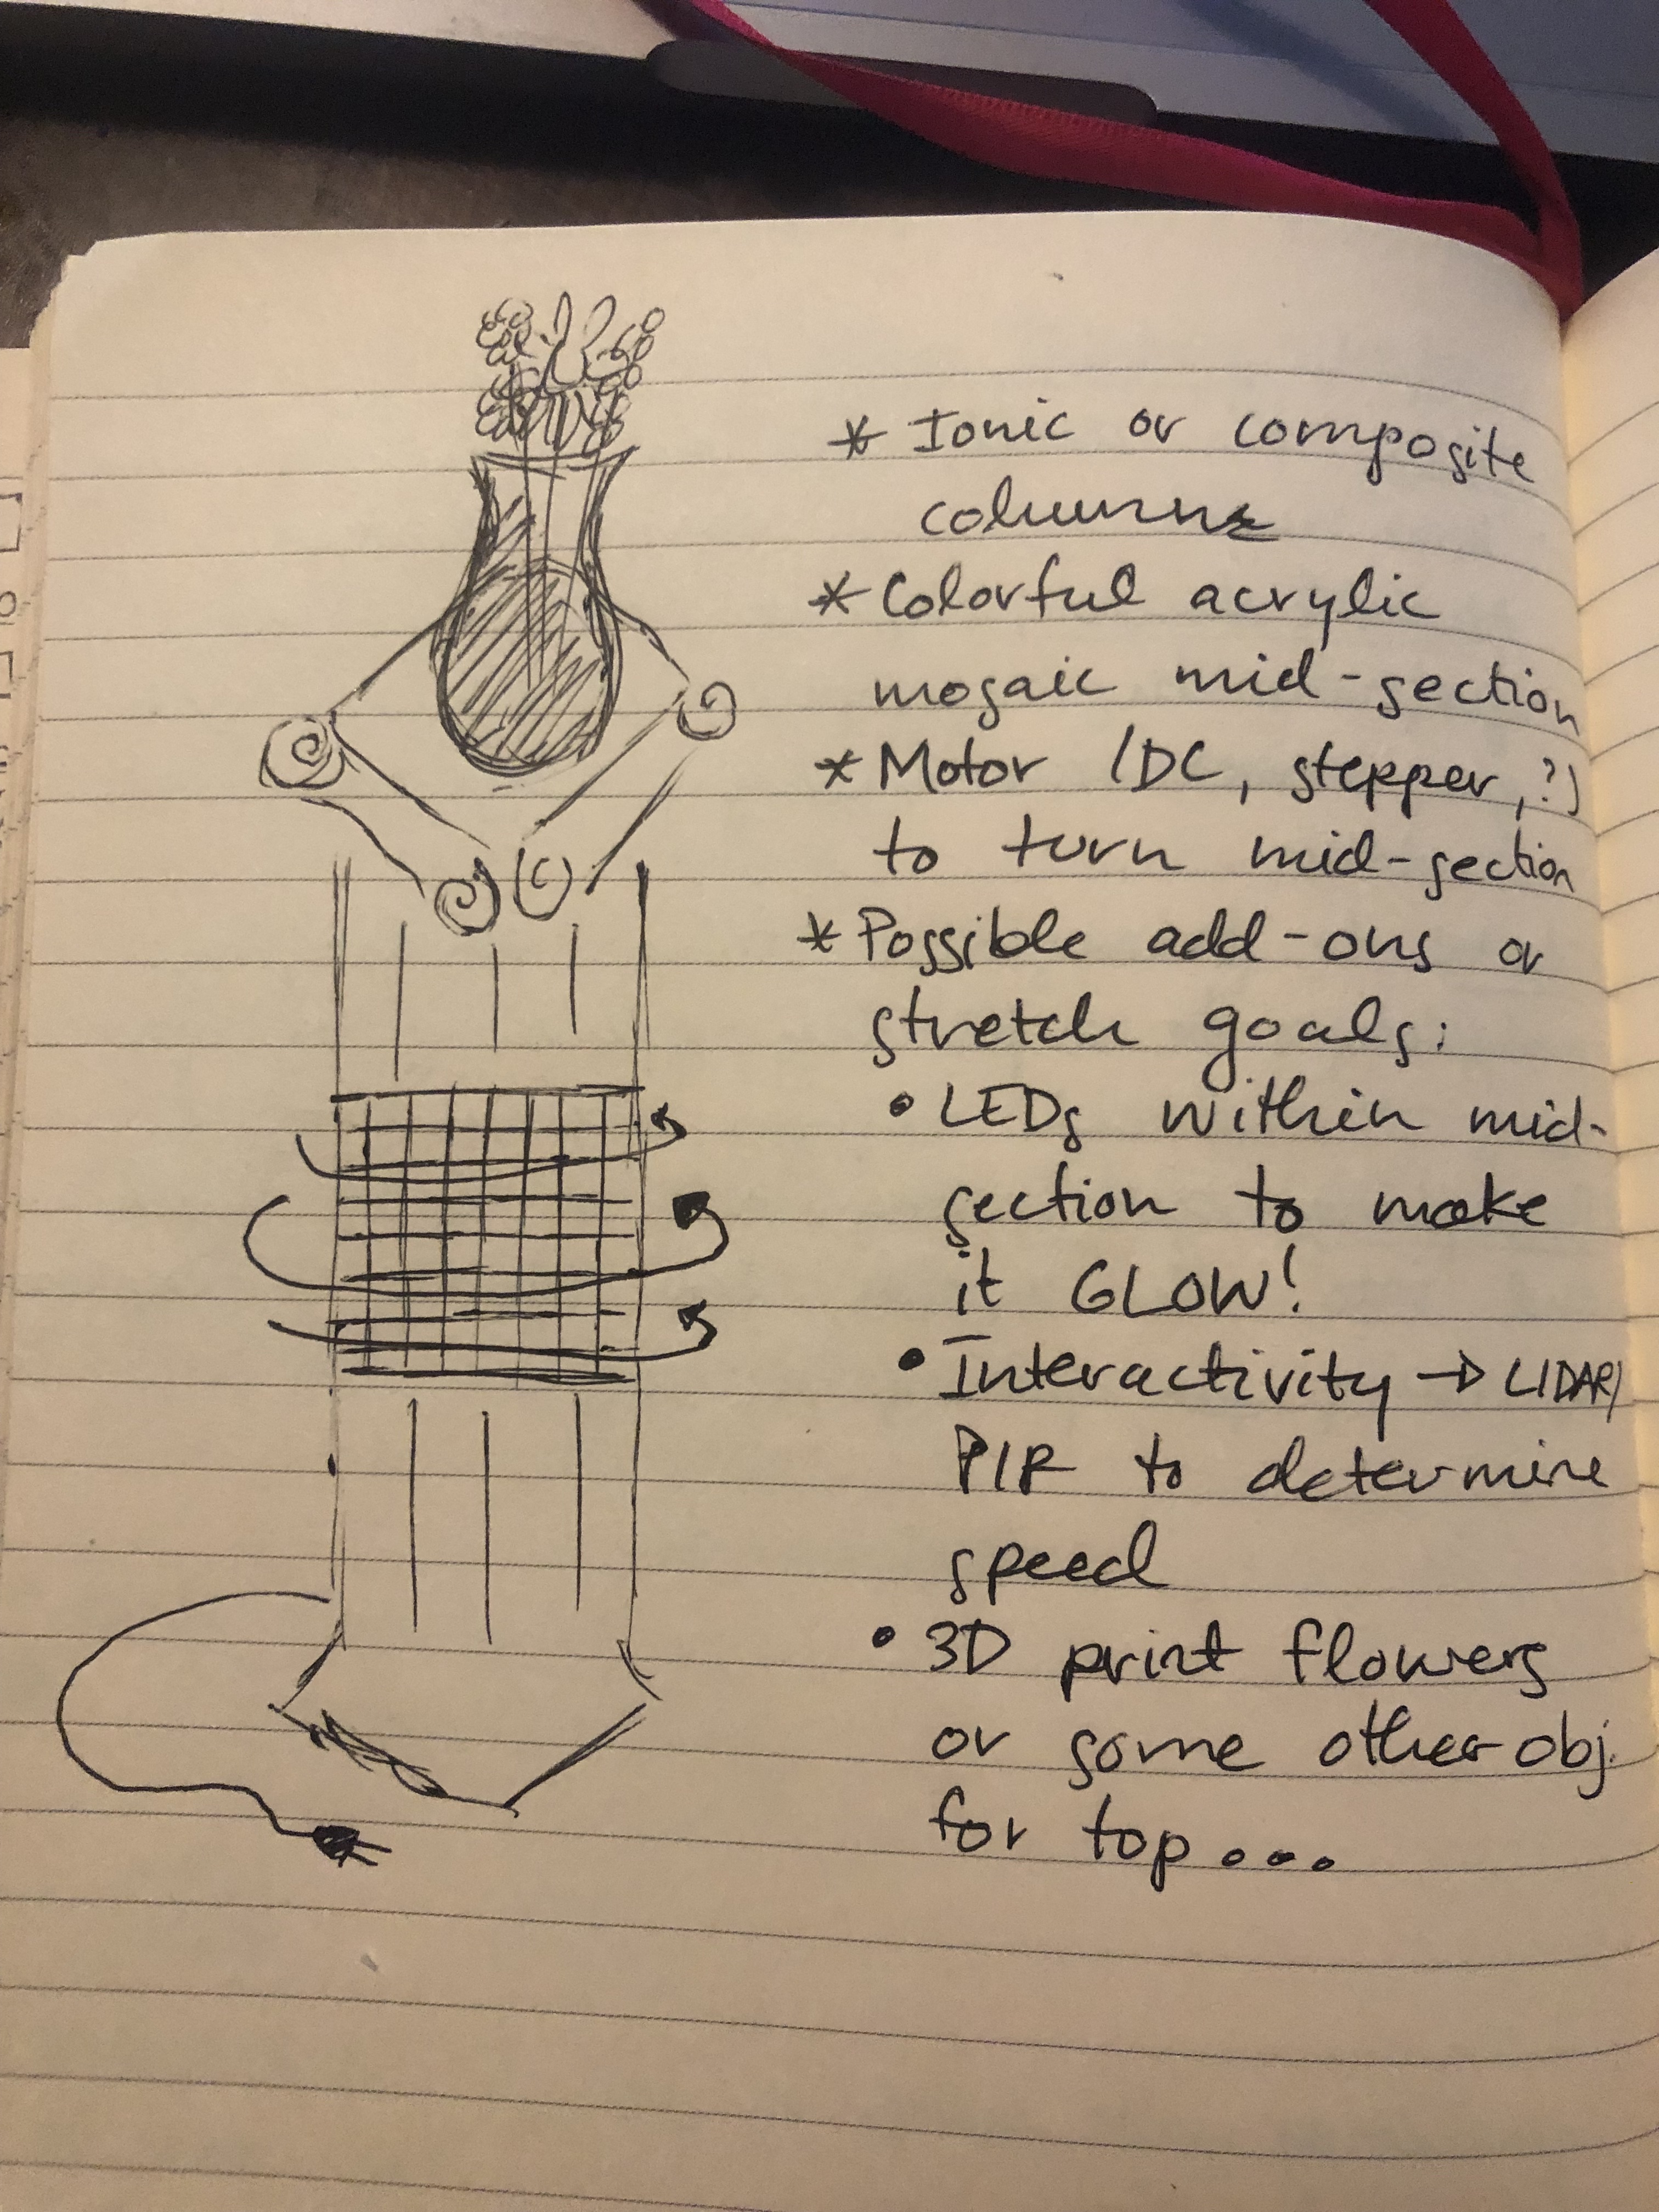 * Ionic or composite
columns
* Colorful acrylic
mosaic mid-section
* Motor (DC, stepper, ?)
to turn mid-section
* Possible add-ons or
stretch goals:
• LEDs within mid-
section to make
it GLOW!
• Interactivity → LIDAR/
PIR to determine
speed
• 3D print flowers
or some other obj.
for top...